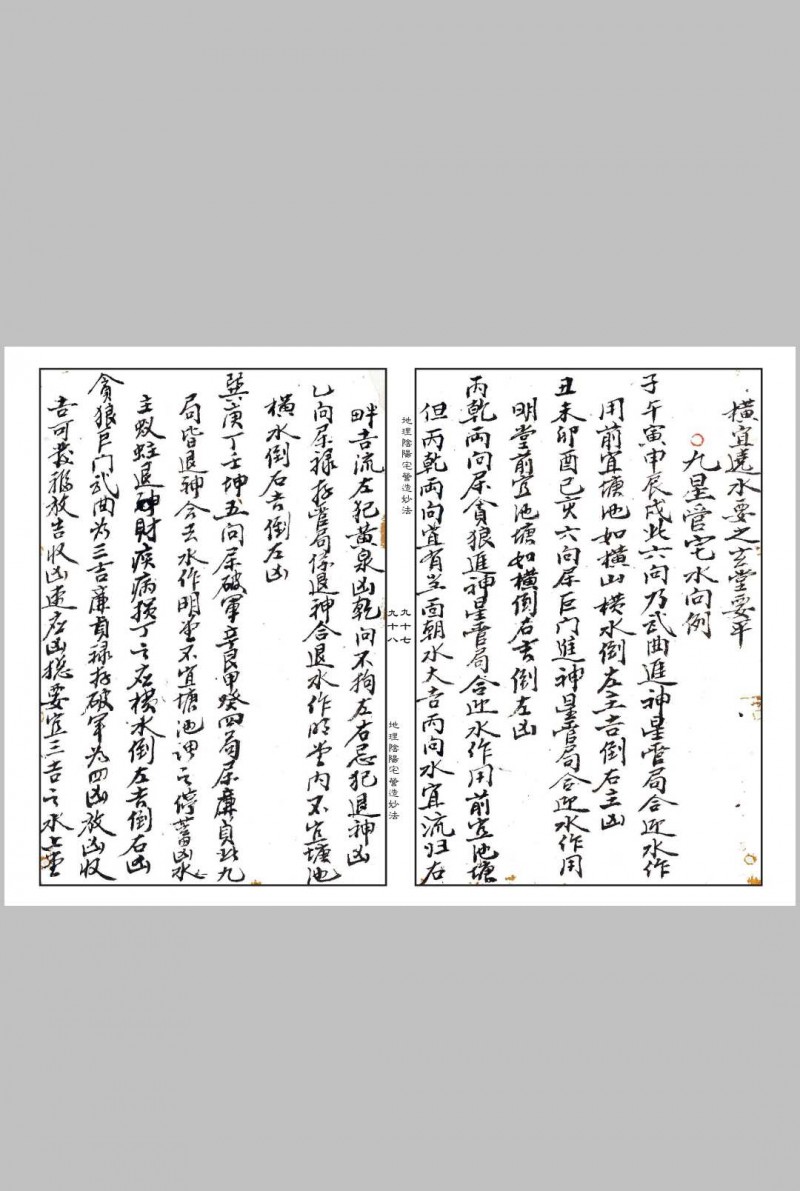 橫宜遶水要之玄堂要平
九星管宅水向例
子午寅申辰戌此六向乃武曲進神星管局合迎水作
用前宜塘池如橫山橫水倒左主吉倒右主凶
丑未卯酉巳亥六向屬巨門進神星管局合迎水作用
明堂前宜池塘如橫倒右吉倒左凶
丙乾两向屬貪狼進神星管局合迎水作用前宜池塘
但丙乾两向宜有当面朝水大吉丙向水宜流归右
地理陰陽宅營造妙法
九十七
九十八
地理陰陽宅營造妙法
畔吉流左犯黃泉凶乾向不拘左右忌犯退神凶
乙向屬祿存管局係退神合退水作明堂内不宜塘池
橫水倒右吉倒左凶
巽庚丁壬坤五向屬破軍辛艮甲癸四局屬廉貞此九
局皆退神合去水作明堂不宜塘池謂之停蓄凶水
主敗蛀退財疾病損丁之应橫水倒左吉倒右凶
貪狼巨門武曲为三吉廉貞祿存破军为四凶放凶收
吉可發福放吉收凶速应凶揔要宜三吉之水上堂